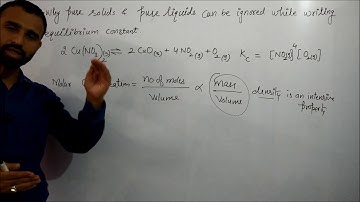 Why pure solids & pure liquids can be ignored while writing
equilibrium constant
2 Cu(NO3)2(s) ⇌ 2 CuO(s) + 4 NO2(g) + O2(g) Kc = [NO2(g)]^4 [O2(g)]
Molar = no of moles / Volume ∝ mass / Volume density is an intensive
property